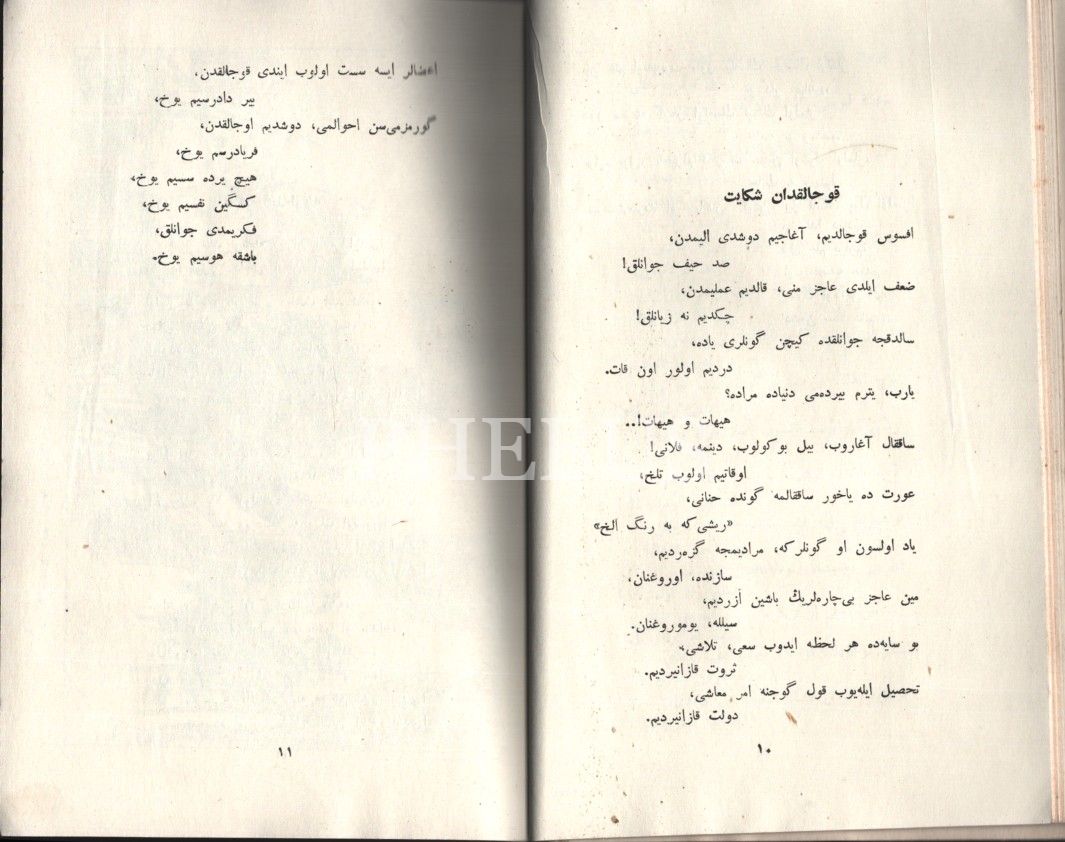 قوجالقدان شکایت
افسوس قوجالدیم، آغاجیم دوشدی الیمدن،
صد حیف جوانلق!
ضعف ایلدی عاجز منی، قالدیم عملیمدن،
چکدیم نه زیانلق!
سالدقجه جوانلقده کیچن گونلری یاده،
دردیم اولور اون قات.
یارب، یترم بیرده‌می دنیاده مراده؟
هیهات و هیهات!..
ساققال آغاروب، بیل بوکولوب، دینمه، فلانی!
اوقاتیم اولوب تلخ،
عورت ده یاخور ساققالمه گونده حنانی،
«ریشی‌که به رنگ الخ»
یاد اولسون او گونلرکه، مرادیمجه گزه‌ردیم،
سازنده، اوروغنان،
مین عاجز بی‌چاره‌لریڭ باشین ازردیم،
سیلله، یوموروغنان.
بو سایه‌ده هر لحظه ایدوب سعی، تلاشی،
ثروت قازانیردیم.
تحصیل ایله‌یوب قول گوجنه امر معاشی،
دولت قازانیردیم.
۱۰
اعضالر ایسه سست اولوب ایندی قوجالقدن،
بیر دادرسیم یوخ،
گورمزمی‌سن احوالمی، دوشدیم اوجالقدن،
فریادرسم یوخ،
هیچ یرده سسیم یوخ،
کسگین نفسیم یوخ،
فکریمدی جوانلق،
باشقه هوسیم یوخ.
۱۱